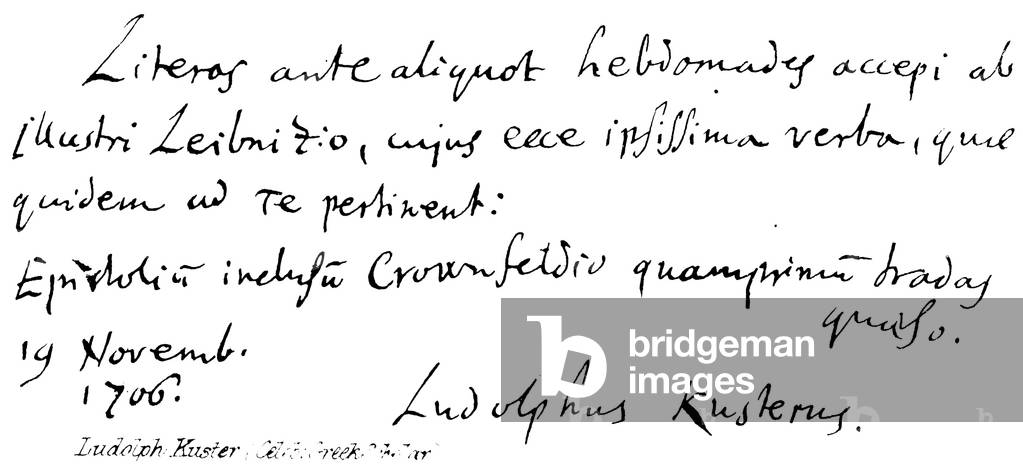 Literas ante aliquot hebdomades accepi ab
Illustri Leibnizio, cujus ecce ipsissima verba, quae
quidem ad Te pertinent:
Epistoliū inclusū Crownfeldio quamprimū tradas
quaeso.
19 Novemb.
1706.
Ludolphus Kusterus.
Ludolph Kuster Greek Scholar
bridgeman
images